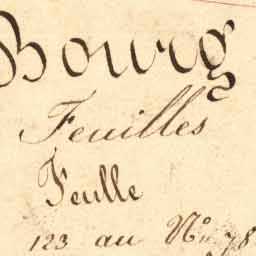 Bourg
Feuilles
Feulle
123 au N° 78